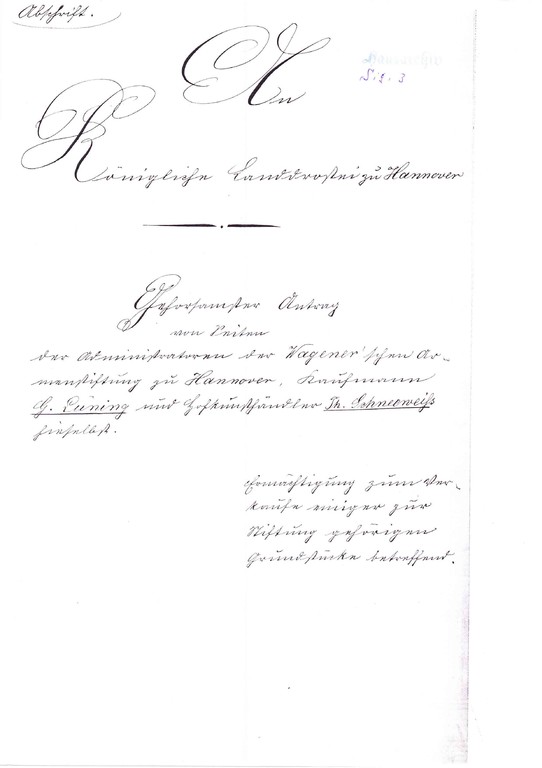 Abschrift.
An
Königliche Landdrostei zu Hannover
Gehorsamster Antrag
von Seiten
der Administratoren der Wagener'schen Ar-
menstiftung zu Hannover, Kaufmann
G. Lüning und Hofkunsthändler Th. Schneeweiß
hieselbst.
Ermächtigung zum Ver-
kaufe einiger zur
Stiftung gehörigen
Grundstücke betreffend.